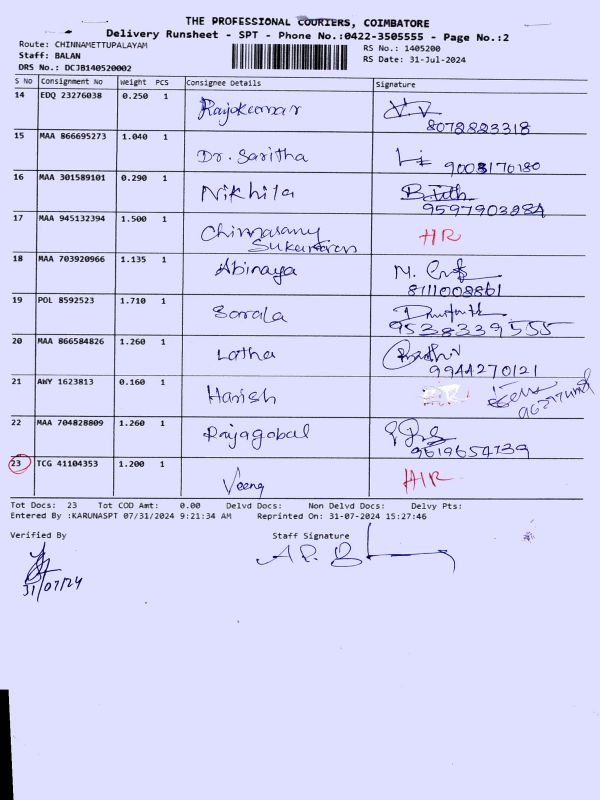 THE PROFESSIONAL COURIERS, COIMBATORE
Delivery Runsheet - SPT - Phone No.:0422-3505555 - Page No.:2
Route: CHINNAMETTUPALAYAM RS No.: 1405200
Staff: BALAN RS Date: 31-Jul-2024
DRS No.: DCJB140520002
S No Consignment No Weight PCS Consignee Details Signature
14 EDQ 23276038 0.250 1 Rajokumar
8072823318
15 MAA 866695273 1.040 1 Dr. Saritha
9003170180
16 MAA 301589101 0.290 1 Nikhila
9597903284
17 MAA 945132394 1.500 1 Chinnasamy HR
18 MAA 703920966 1.135 1 Abinaya
8111008861
19 POL 8592523 1.710 1 Sorala
9538339555
20 MAA 866584826 1.260 1 Latha
9944270121
21 AWY 1623813 0.160 1 Harish
22 MAA 704828809 1.260 1 Rajagobal
9619654739
23 TCG 41104353 1.200 1 Veena HR
Tot Docs: 23 Tot COD Amt: 0.00 Delvd Docs: Non Delvd Docs: Delvy Pts:
Entered By :KARUNASPT 07/31/2024 9:21:34 AM Reprinted On: 31-07-2024 15:27:46
Verified By Staff Signature
31/07/24